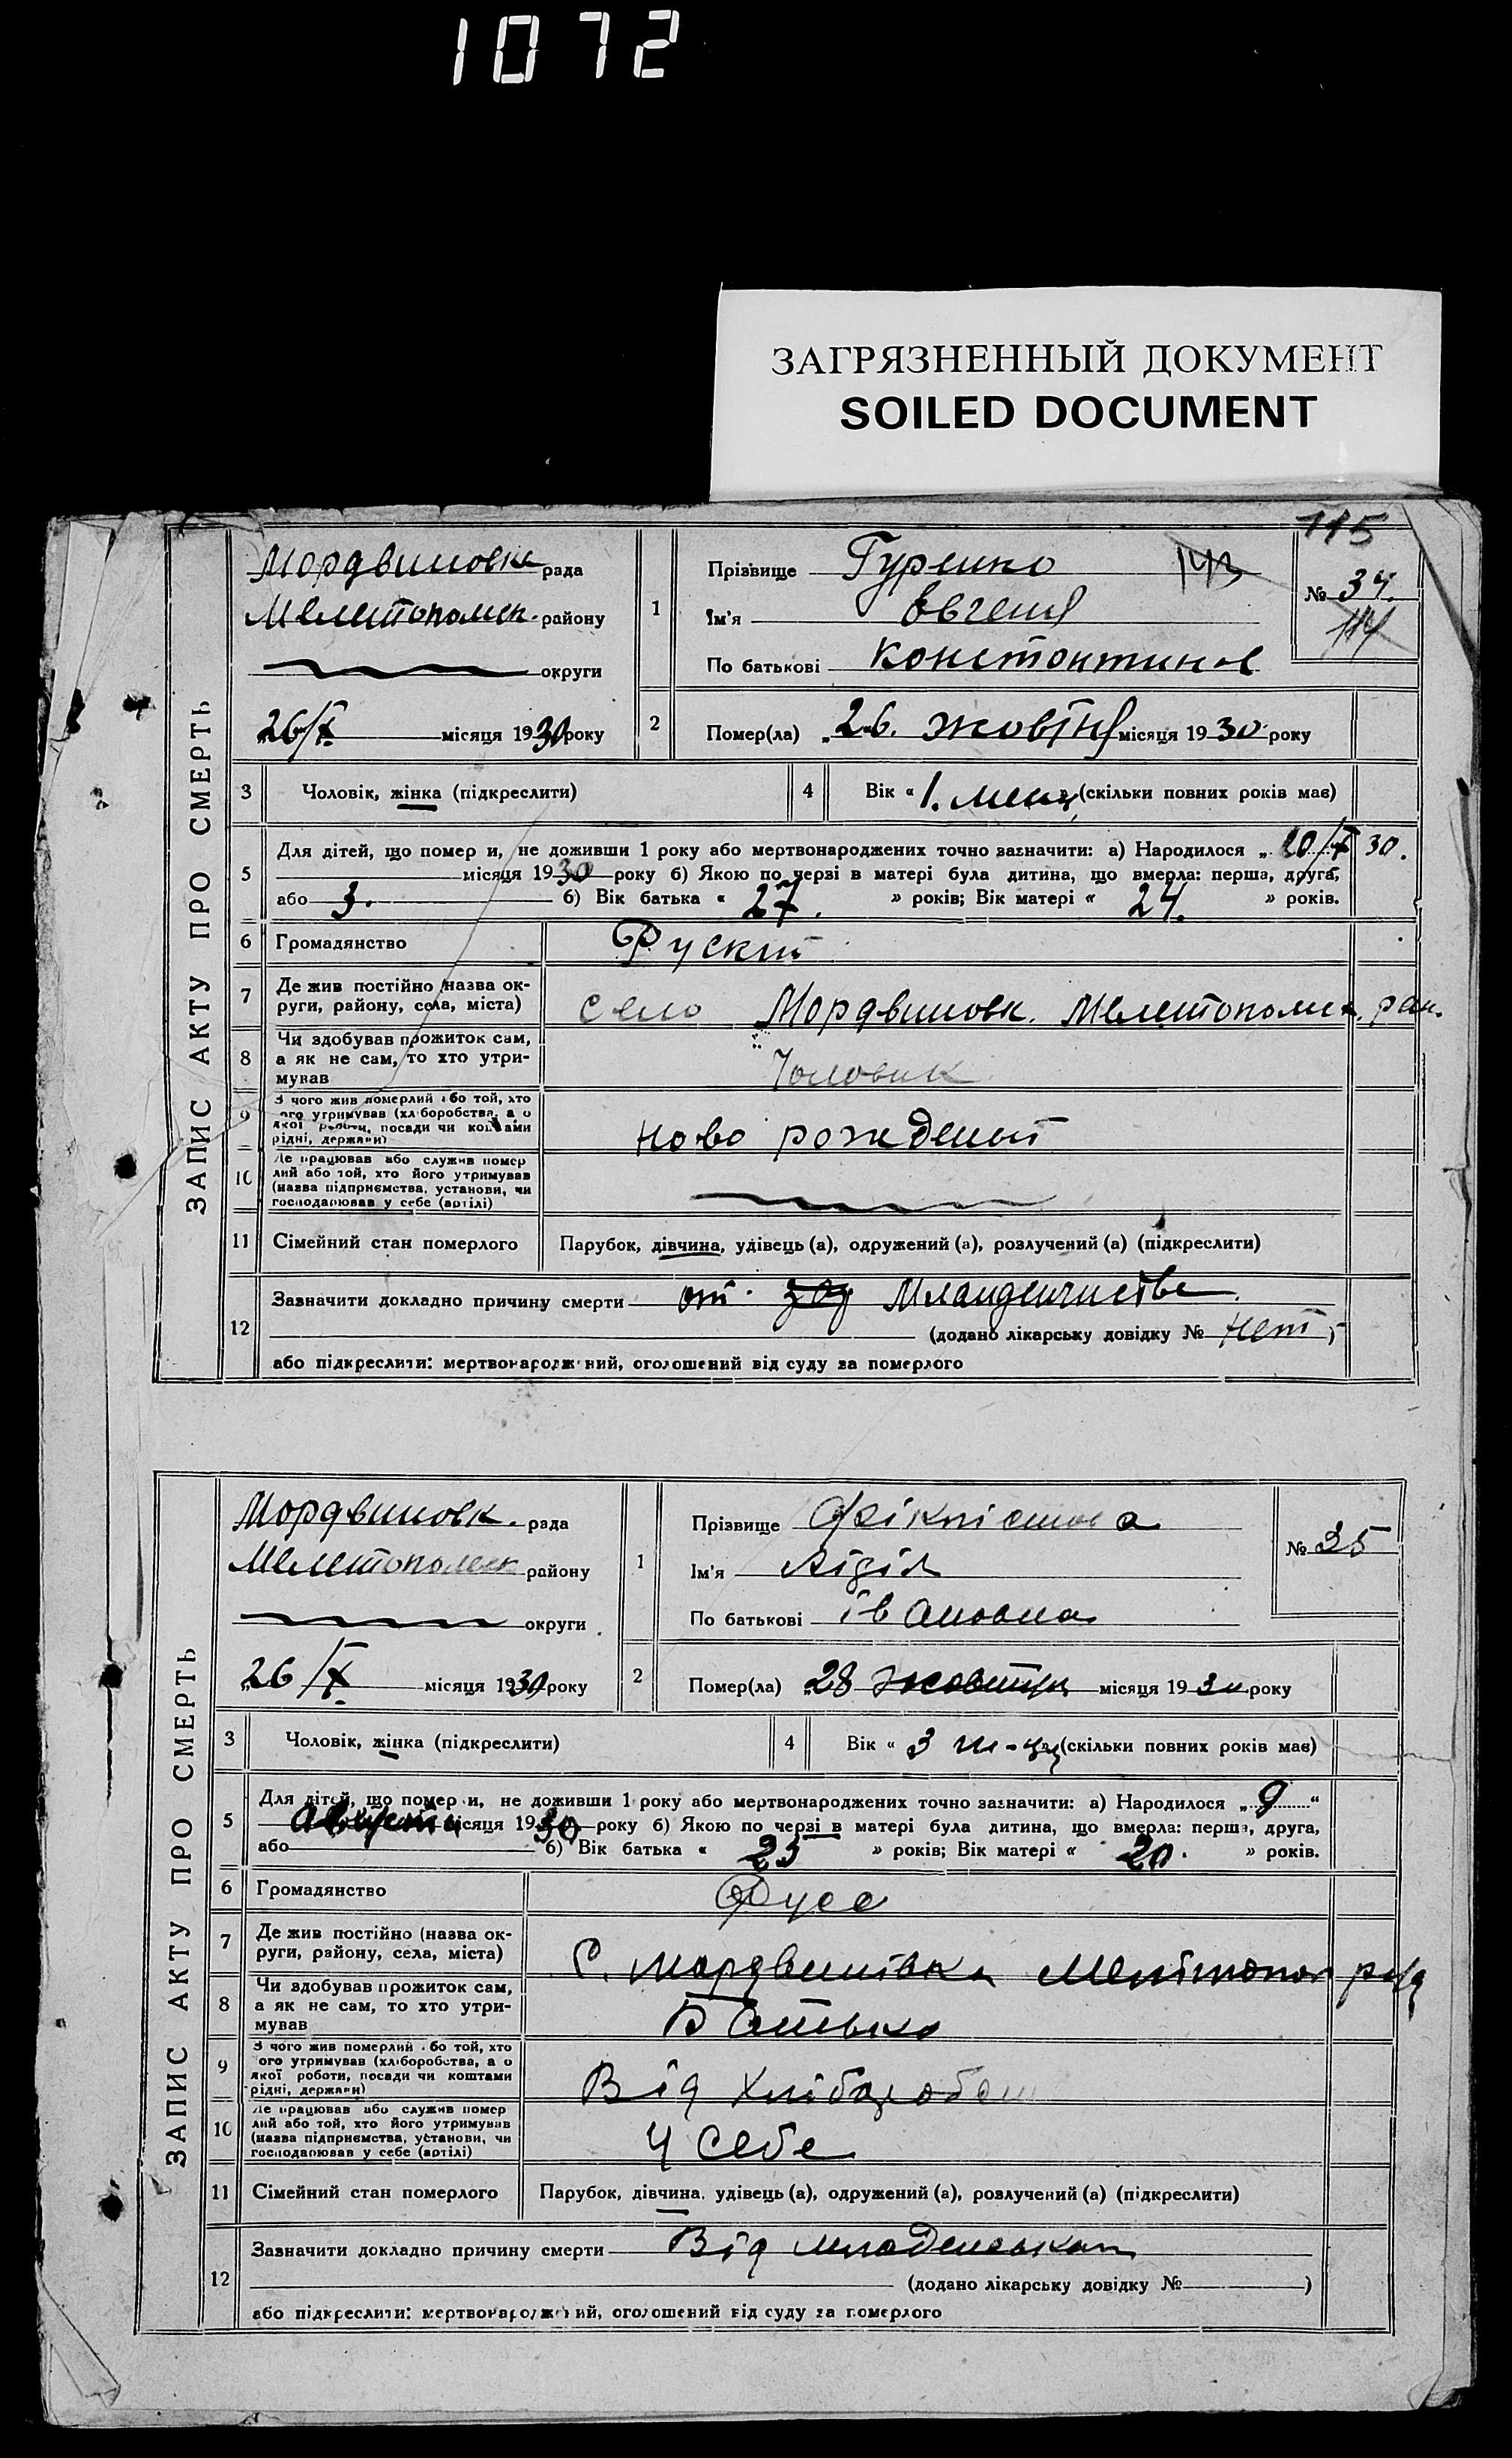 1072
ЗАГРЯЗНЕННЫЙ ДОКУМЕНТ
SOILED DOCUMENT
115
ЗАПИС АКТУ ПРО СМЕРТЬ
Мордвиновк рада
Мелитопольск. району
округи
26/X місяця 1930 року
1
Прізвище Гуренко 113
Ім'я Евгения
По батькові Констонтинов
№ 34.
114
2
Помер(ла) „26. жовтня місяця 1930 року
3 Чоловік, жінка (підкреслити)
4 Вік « 1. месяц (скільки повних років має)
5
Для дітей, що померли, не доживши 1 року або мертвонароджених точно зазначити: а) Народилося „ 10/X 30.
місяця 1930 року б) Якою по черзі в матері була дитина, що вмерла: перша, друга,
або 3. б) Вік батька « 27. » років; Вік матері « 24. » років.
6 Громадянство Руский
7
Де жив постійно (назва ок-
руги, району, села, міста)
село Мордвиновк. Мелитопольск. рай.
8
Чи здобував прожиток сам,
а як не сам, то хто утри-
мував
Чоловик
9
З чого жив померлий або той, хто
його утримував (хліборобства, а о
якої роботи, посади чи коштами
рідні, держави)
ново рожденый
10
Де працював або служив помер
лий або той, хто його утримував
(назва підприємства, установи, чи
господарював у себе (артілі)
11 Сімейний стан померлого Парубок, дівчина, удівець (а), одружений (а), розлучений (а) (підкреслити)
12
Зазначити докладно причину смерти от Младенчистве
(додано лікарську довідку № нет )
або підкреслити: мертвонароджений, оголошений від суду за померлого
ЗАПИС АКТУ ПРО СМЕРТЬ
Мордвиновк. рада
Мелитопольск району
округи
26/X місяця 1930 року
1
Прізвище
Ім'я Лідія
По батькові Івановна
№ 35
2
Помер(ла) „28 жовтня місяця 1930 року
3 Чоловік, жінка (підкреслити)
4 Вік « 3 м-ця (скільки повних років має)
5
Для дітей, що померли, не доживши 1 року або мертвонароджених точно зазначити: а) Народилося „ 9 “
августа місяця 1930 року б) Якою по черзі в матері була дитина, що вмерла: перша, друга,
або б) Вік батька « 23 » років; Вік матері « 20. » років.
6 Громадянство Русс
7
Де жив постійно (назва ок-
руги, району, села, міста)
С. Мордвинівка Мелітопол рай
8
Чи здобував прожиток сам,
а як не сам, то хто утри-
мував
Батько
9
З чого жив померлий або той, хто
його утримував (хліборобства, а о
якої роботи, посади чи коштами
рідні, держави)
Від Хліборобст
10
Де працював або служив помер
лий або той, хто його утримував
(назва підприємства, установи, чи
господарював у себе (артілі)
У себе
11 Сімейний стан померлого Парубок, дівчина, удівець (а), одружений (а), розлучений (а) (підкреслити)
12
Зазначити докладно причину смерти Від
(додано лікарську довідку № )
або підкреслити: мертвонароджений, оголошений від суду за померлого